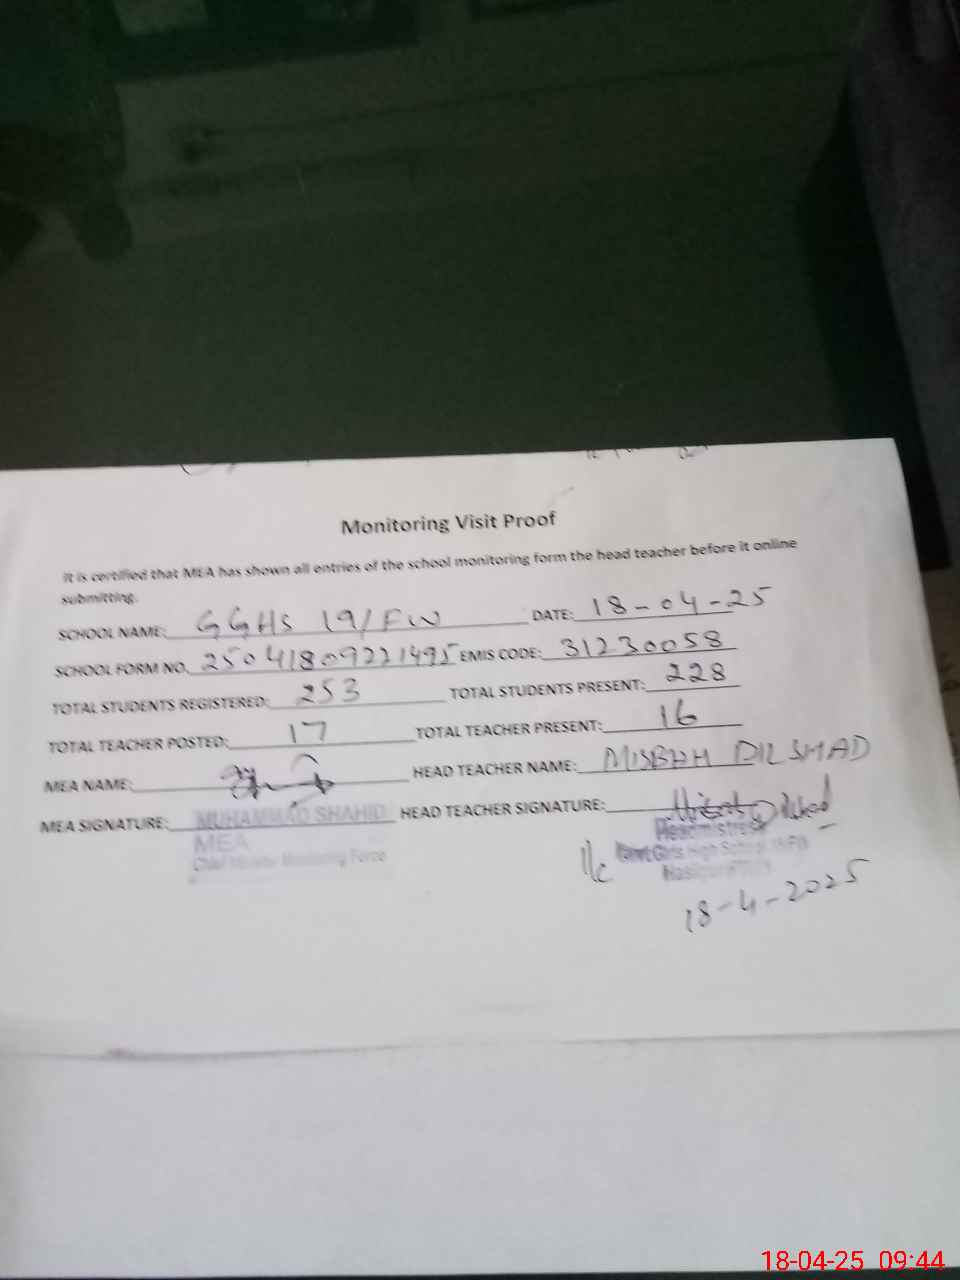 Monitoring Visit Proof
It is certified that MEA has shown all entries of the school monitoring form the head teacher before it online
submitting.
SCHOOL NAME: GGHS 19/FW DATE: 18-04-25
SCHOOL FORM NO. 25041809221495 EMIS CODE: 31230058
TOTAL STUDENTS REGISTERED: 253 TOTAL STUDENTS PRESENT: 228
TOTAL TEACHER POSTED: 17 TOTAL TEACHER PRESENT: 16
MEA NAME: HEAD TEACHER NAME: MISBAH DILSHAD
MEA SIGNATURE: MUHAMMAD SHAHID HEAD TEACHER SIGNATURE:
MEA
Chief Minister Monitoring Force
Headmistress
Govt Girls High School
18-4-2025
18-04-25 09:44